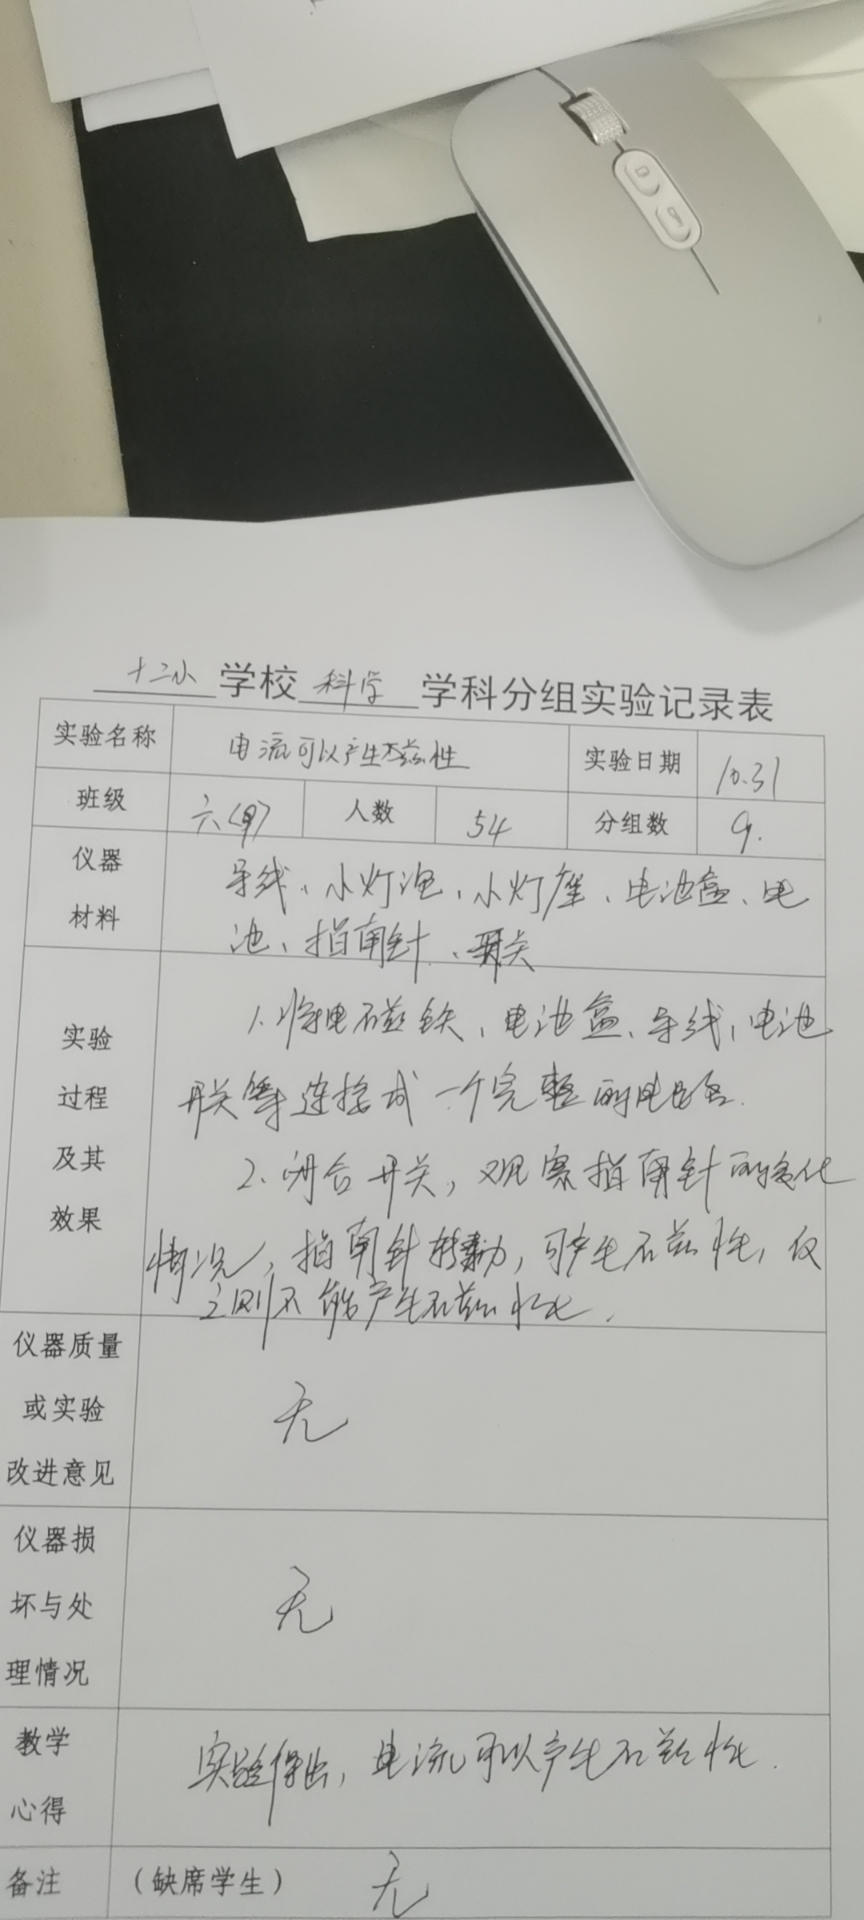 十二小学校科学学科分组实验记录表
实验名称 电流可以产生磁性 实验日期 10.31
班级 六(9) 人数 54 分组数 9.
仪器
材料
导线、小灯泡、小灯座、电池盒、电
池、指南针、开关
实验
过程
及其
效果
1.将电磁铁、电池盒、导线、电池
开关等连接成一个完整的电路.
2.闭合开关,观察指南针的变化
情况,指南针转动,可产生磁性,反
之则不能产生磁性.
仪器质量
或实验
改进意见
无
仪器损
坏与处
理情况
无
教学
心得
实验得出,电流可以产生磁性.
备注 (缺席学生) 无